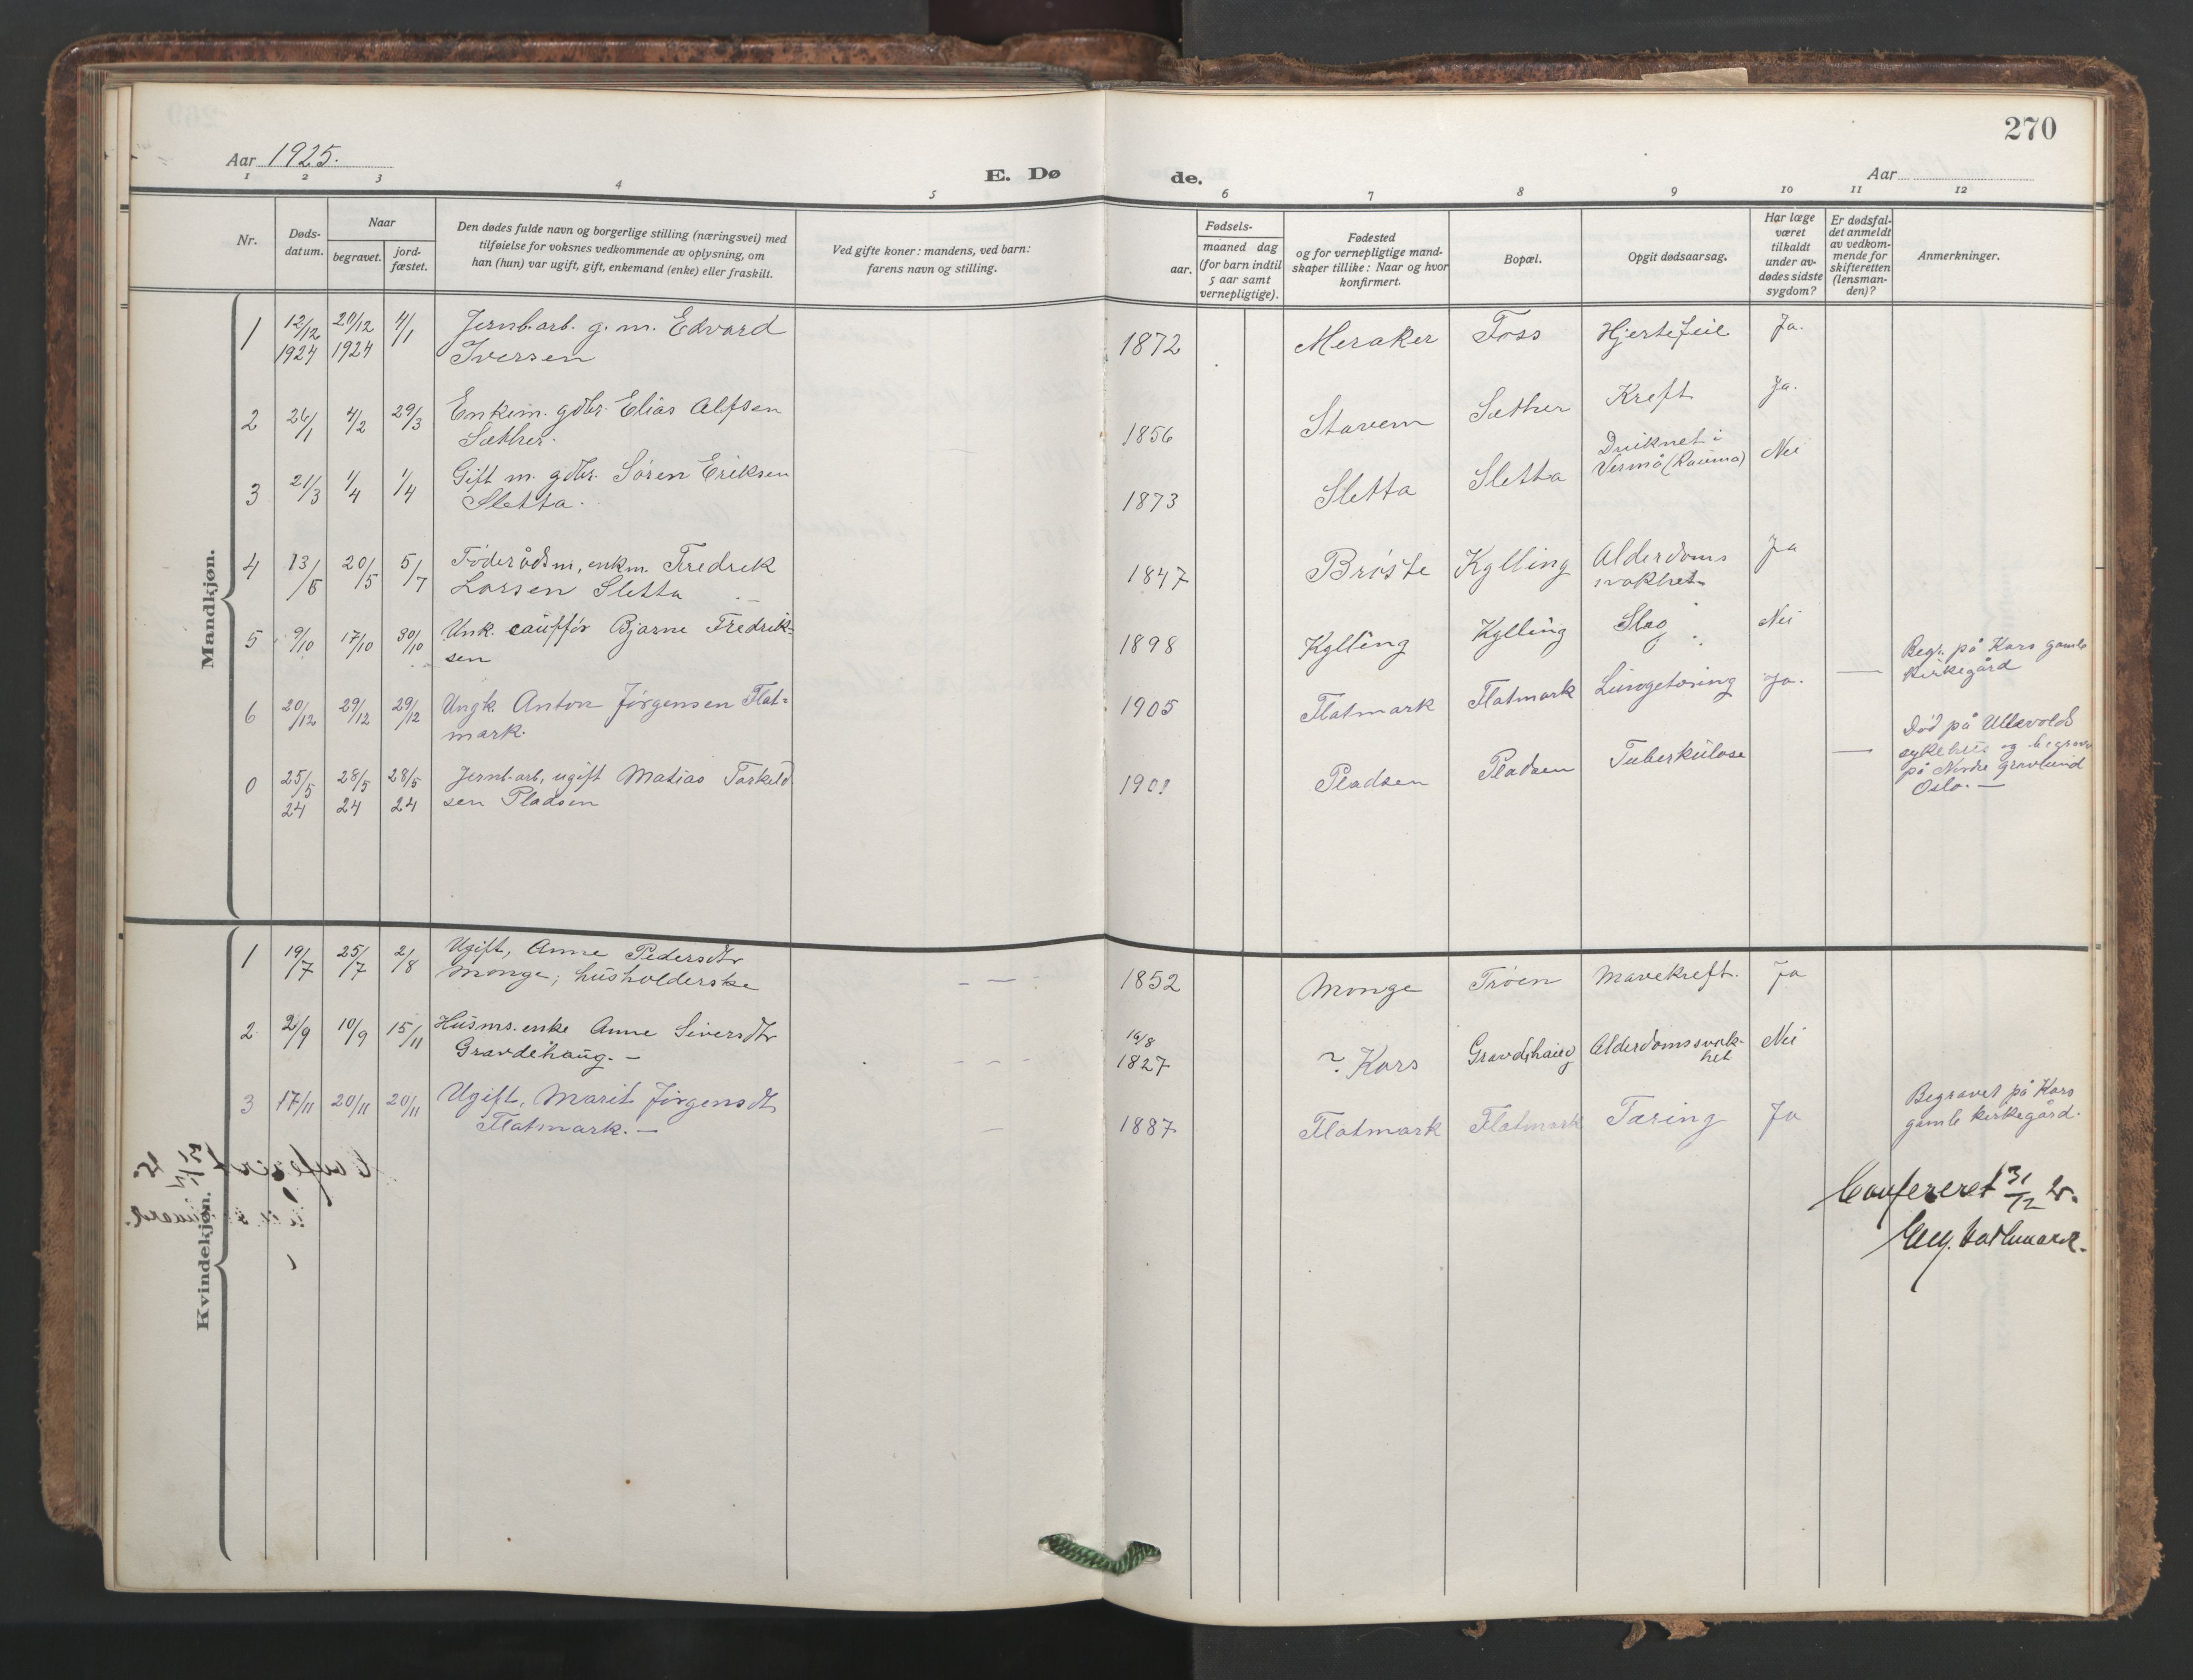 270
Aar 1925.
E. Dø
de.
Aar
1 2 3 4 5 6 7 8 9 10 11 12
Nr.
Døds-
datum.
Naar
begravet.
jord-
fæstet.
Den dødes fulde navn og borgerlige stilling (næringsvei) med
tilføielse for voksnes vedkommende av oplysning, om
han (hun) var ugift, gift, enkemand (enke) eller fraskilt.
Ved gifte koner: mandens, ved barn:
farens navn og stilling.
Fødsels-
aar.
maaned dag
(for barn indtil
5 aar samt
vernepligtige).
Fødested
og for vernepligtige mand-
skaper tillike: Naar og hvor
konfirmert.
Bopæl.
Opgit dødsaarsag.
Har læge
været
tilkaldt
under av-
dødes sidste
sygdom?
Er dødsfal-
det anmeldt
av vedkom-
mende for
skifteretten
(lensman-
den)?
Anmerkninger.
Mandkjøn.
1 12/12 1924 20/12 1924 4/1 Jernb.arb. g. m. Edvard
Iversen 1872 Meraker Foss Hjertefeil Ja.
2 26/1 4/2 29/3 Enkem. gdbr. Elias Alfsen
Sæther. 1856 Stavem Sæther Kreft Ja.
3 21/3 1/4 1/4 Gift m. gdbr. Sören Eriksen
Sletta. 1873 Sletta Sletta Druknet i
Vermå (Rauma) Nei
4 13/5 20/5 5/7 Föderådsm, enkm. Fredrik
Larsen Sletta 1847 Brøste Kylling Alderdoms
svakhet Ja
5 9/10 17/10 30/10 Unk. cauffør Bjarne Fredrik-
sen 1898 Kylling Kylling Slag Nei
6 20/12 29/12 29/12 Ungk. Anton Jørgensen Flat-
mark. 1905 Flatmark Flatmark Lungetæring Ja. — Begr. på Kors gamle
kirkegård
0 25/5 24 28/5 24 28/5 24 Jernb.arb, ugift Matias Torkeld
sen Pladsen 1901 Pladsen Pladsen Tuberkulose — Död på Ullevolds
sykehus og begravet
på Nordre gravlund
Oslo. —
Kvindekjøn.
1 19/7 25/7 2/8 Ugift, Anne Pedersdtr
Monge; husholderske — — 1852 Monge Trøen Mavekreft. Ja
2 2/9 10/9 15/11 Husms. enke Anne Siversdtr
Gravdehaug. — — — — 16/8
1827 ? Kors Gravdehaug Alderdomssvak-
het Nei
3 17/11 20/11 20/11 Ugift, Marit Jørgensdt
Flatmark. — — 1887 Flatmark Flatmark Tæring Ja Begravet på Kors
gamle kirkegård.
Confereret 31/12 25.